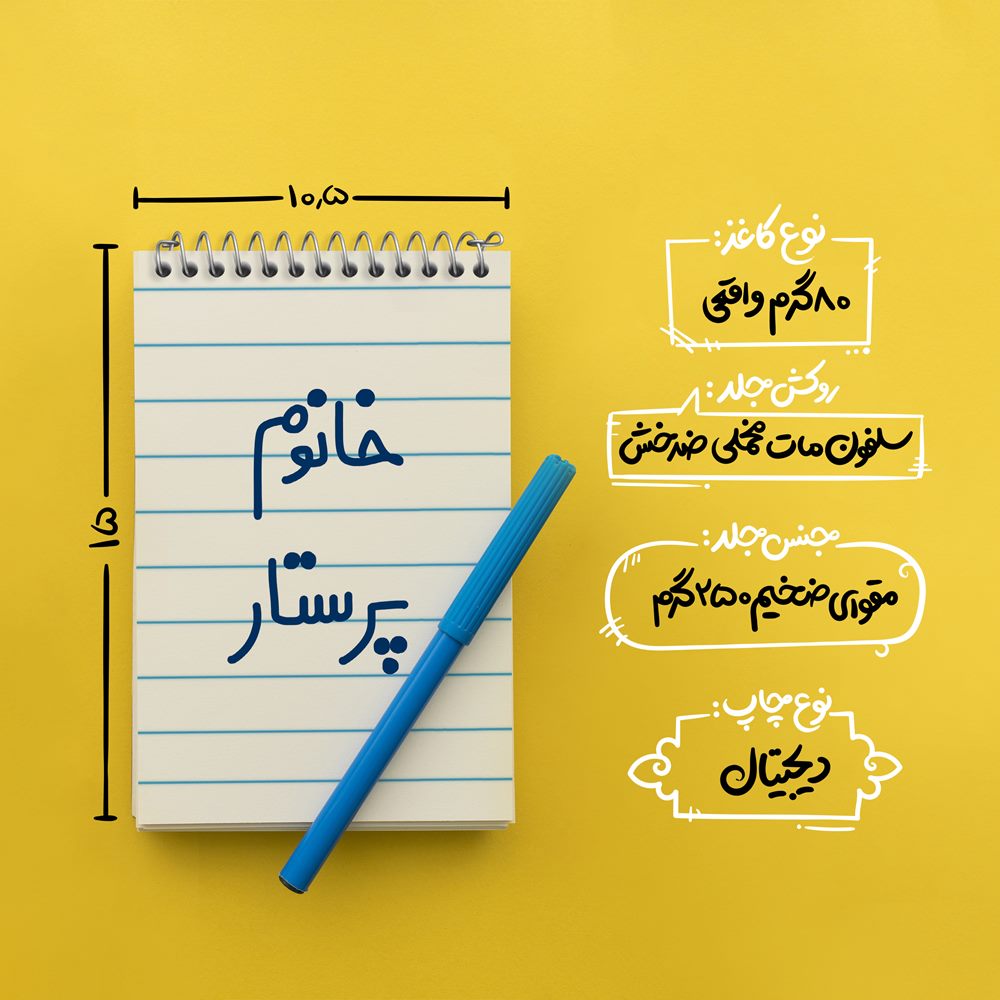 ۱۰٫۵
۱۵
خانوم
پرستار
نوع کاغذ:
۸۰گرم واقعی
روکش جلد:
سلفون مات مخملی ضدخش
جنس جلد:
مقوای ضخیم ۲۵۰گرم
نوع چاپ:
دیجیتال